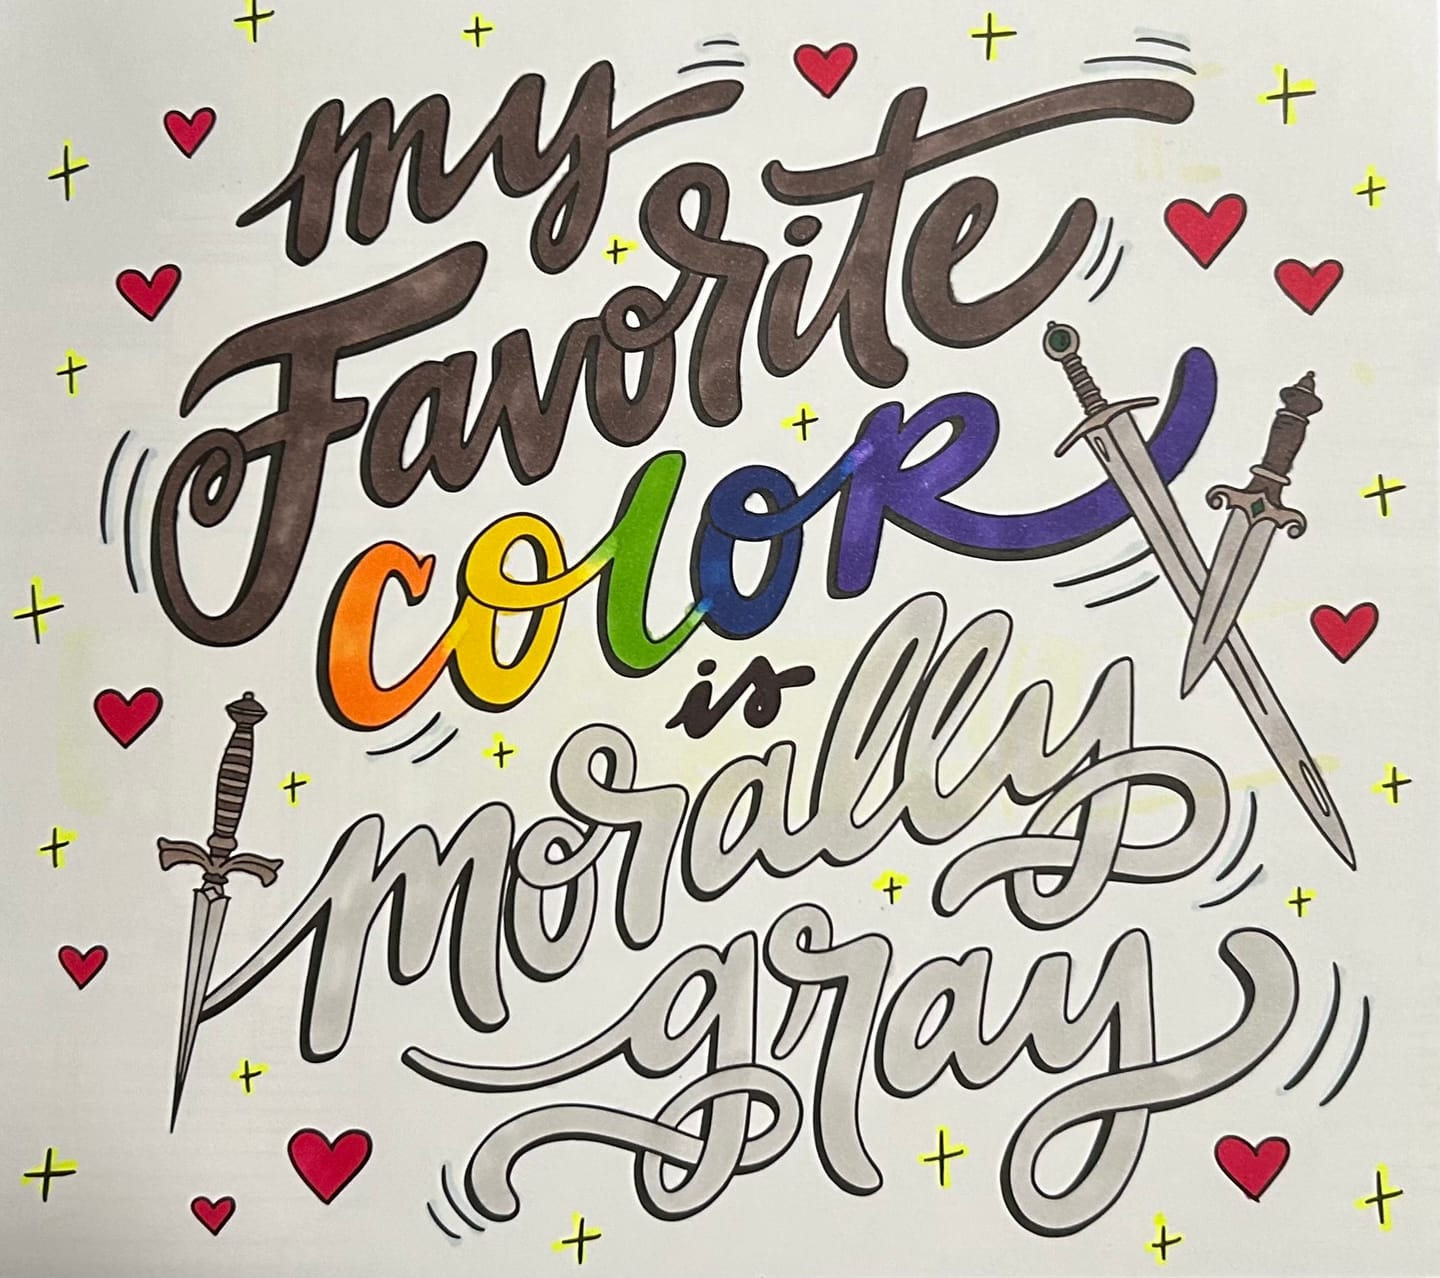 my
Favorite
coloR
is
morally
gray